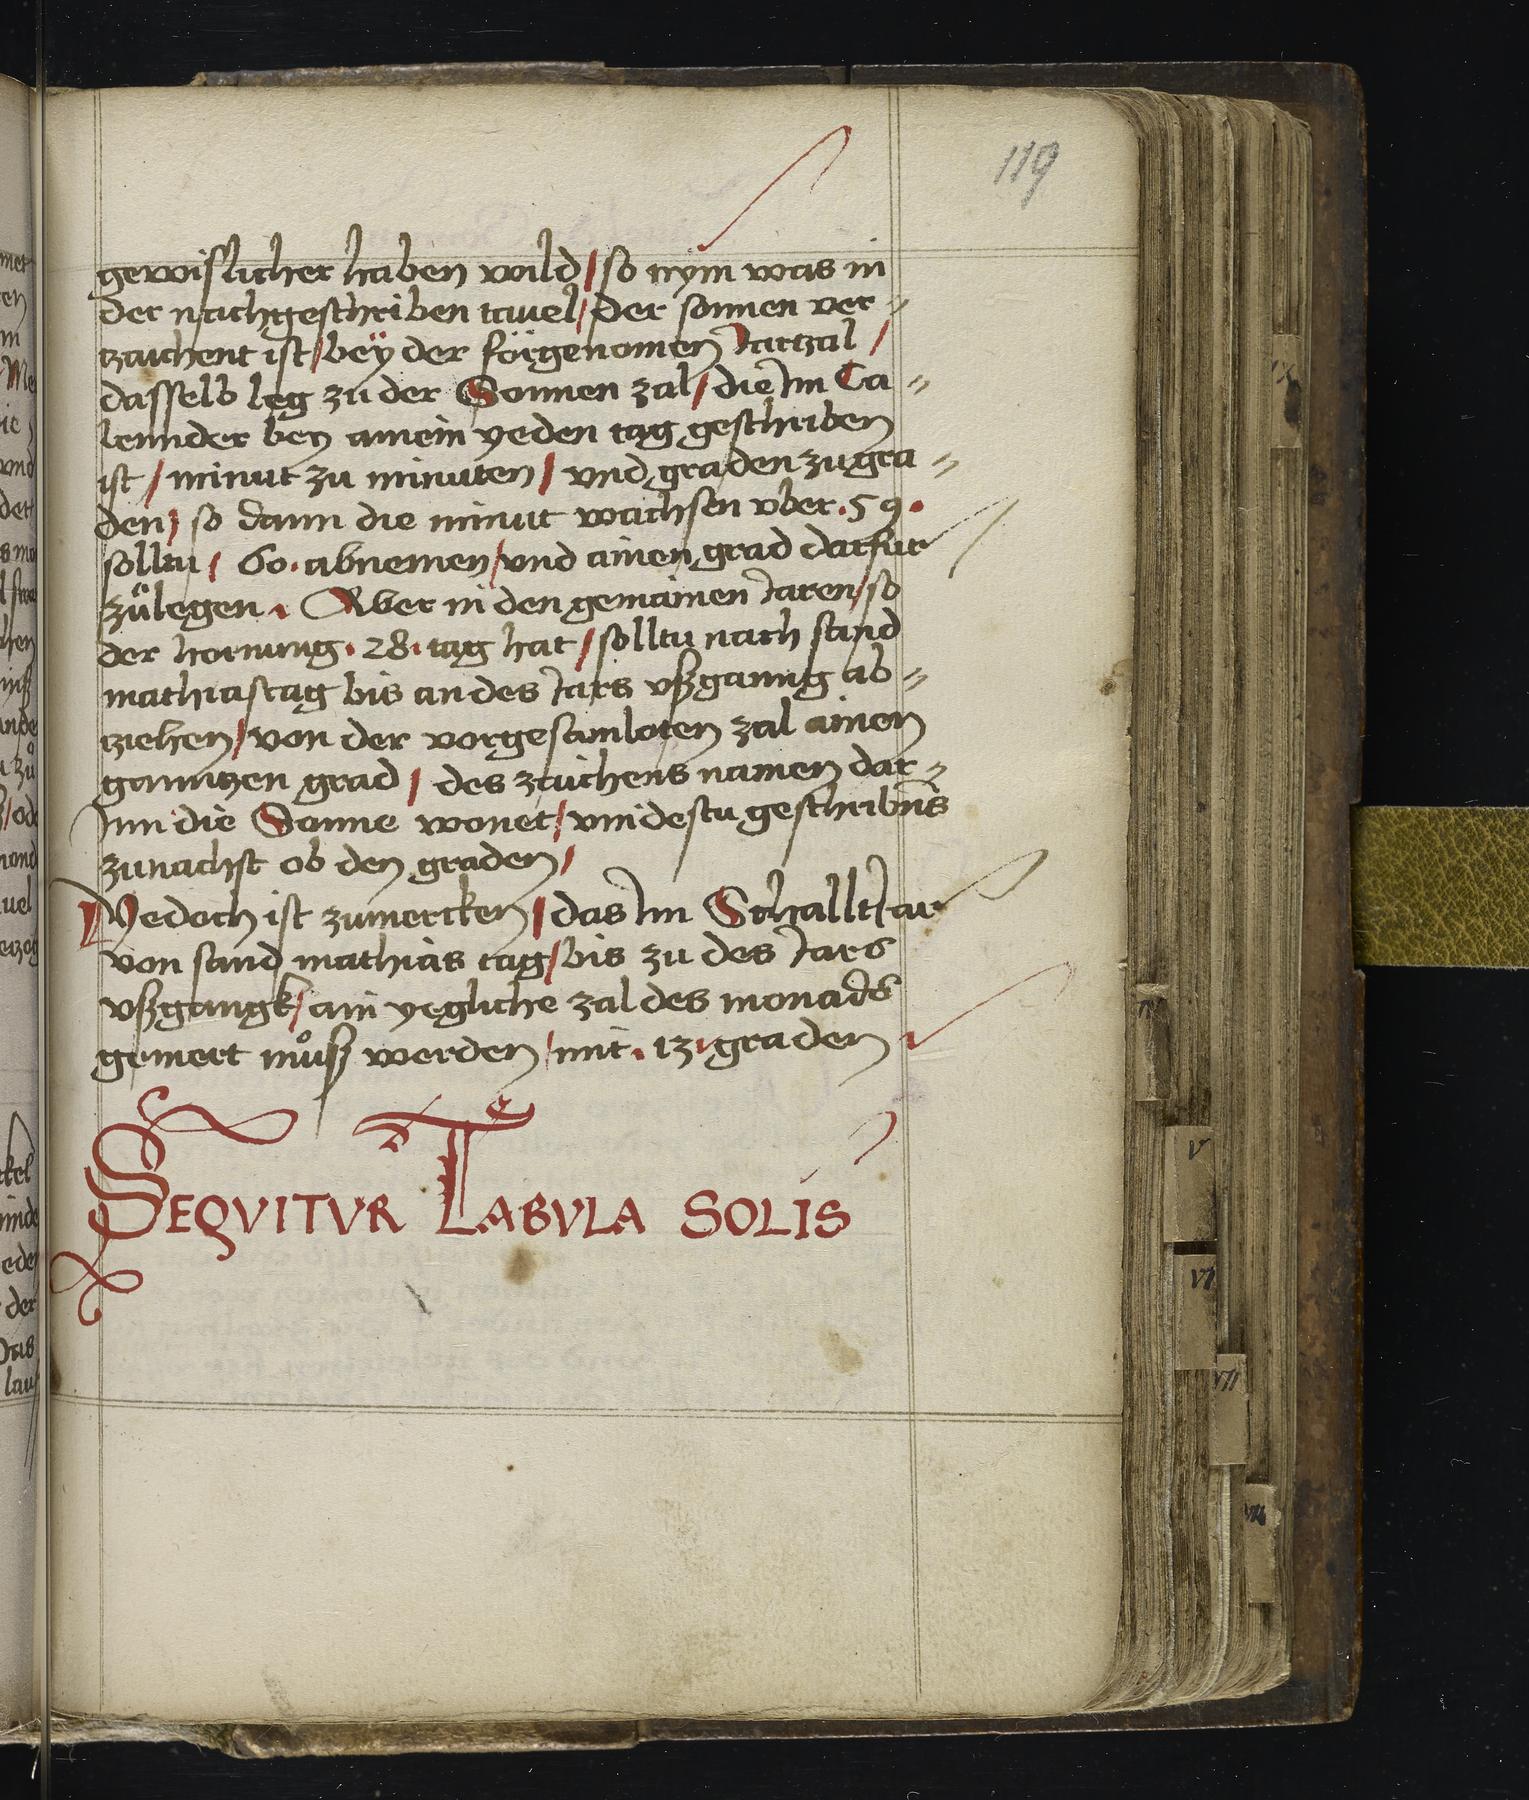 119
gewislicher haben wild / so nym was in
der nachgeschriben tauel / der sonnen ver=
tzaichent ist / beÿ der fürgenomen Jarzal /
dasselb leg zu der Sonnen zal / die Im Ca=
lennder bey ainem yeden tag geschriben
ist / minut zu minuten / vnd graden zu gra=
den / so dann die minut wachsen vber .59.
solltu / 60. abnemen / vnd ainen grad darfur
zůlegen . Aber in den gemainen Jaren / so
der hornung . 28. tag hat / solltu nach sand
mathiastag bis an des Jars vßganng ab=
ziehen / von der vorgesamloten zal ainen
ganntzen grad / des zaichens namen dar=
Inn die Sonne wonet / vindestu geschribnis
zunachst ob den graden /
Yedoch ist zumercken / das Im Schallt Jar
von sand mathias tag / bis zu des Jars
vßgangk / ain yegliche zal des monads
gemert můsß werden / mit . 13. graden
SEQVITVR TABVLA SOLIS
IX
IV
V
VI
VII
VIII